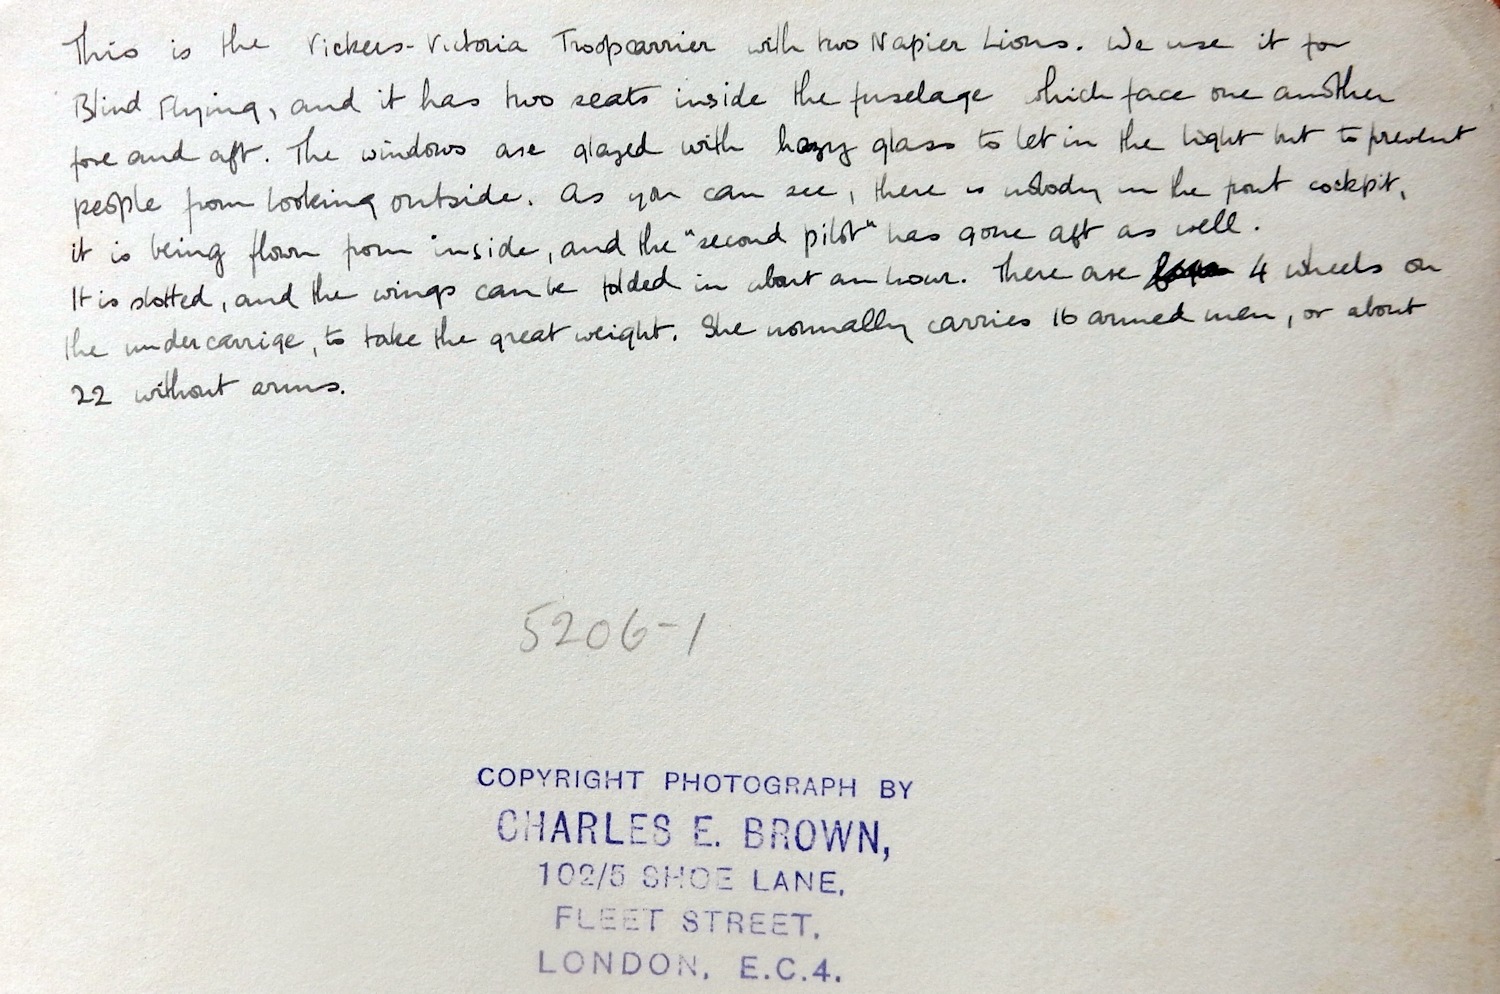 This is the Vickers-Victoria Troopcarrier with two Napier Lions. We use it for
Blind Flying, and it has two seats inside the fuselage which face one another
fore and aft. The windows are glazed with hazy glass to let in the light but to prevent
people from looking outside. As you can see, there is nobody in the front cockpit,
it is being flown from inside, and the "second pilot" has gone aft as well.
It is slotted, and the wings can be folded in about an hour. There are 4 wheels on
the undercarrige, to take the great weight. She normally carries 16 armed men, or about
22 without arms.
5206-1
COPYRIGHT PHOTOGRAPH BY
CHARLES E. BROWN,
102/5 SHOE LANE,
FLEET STREET.
LONDON. E.C.4.